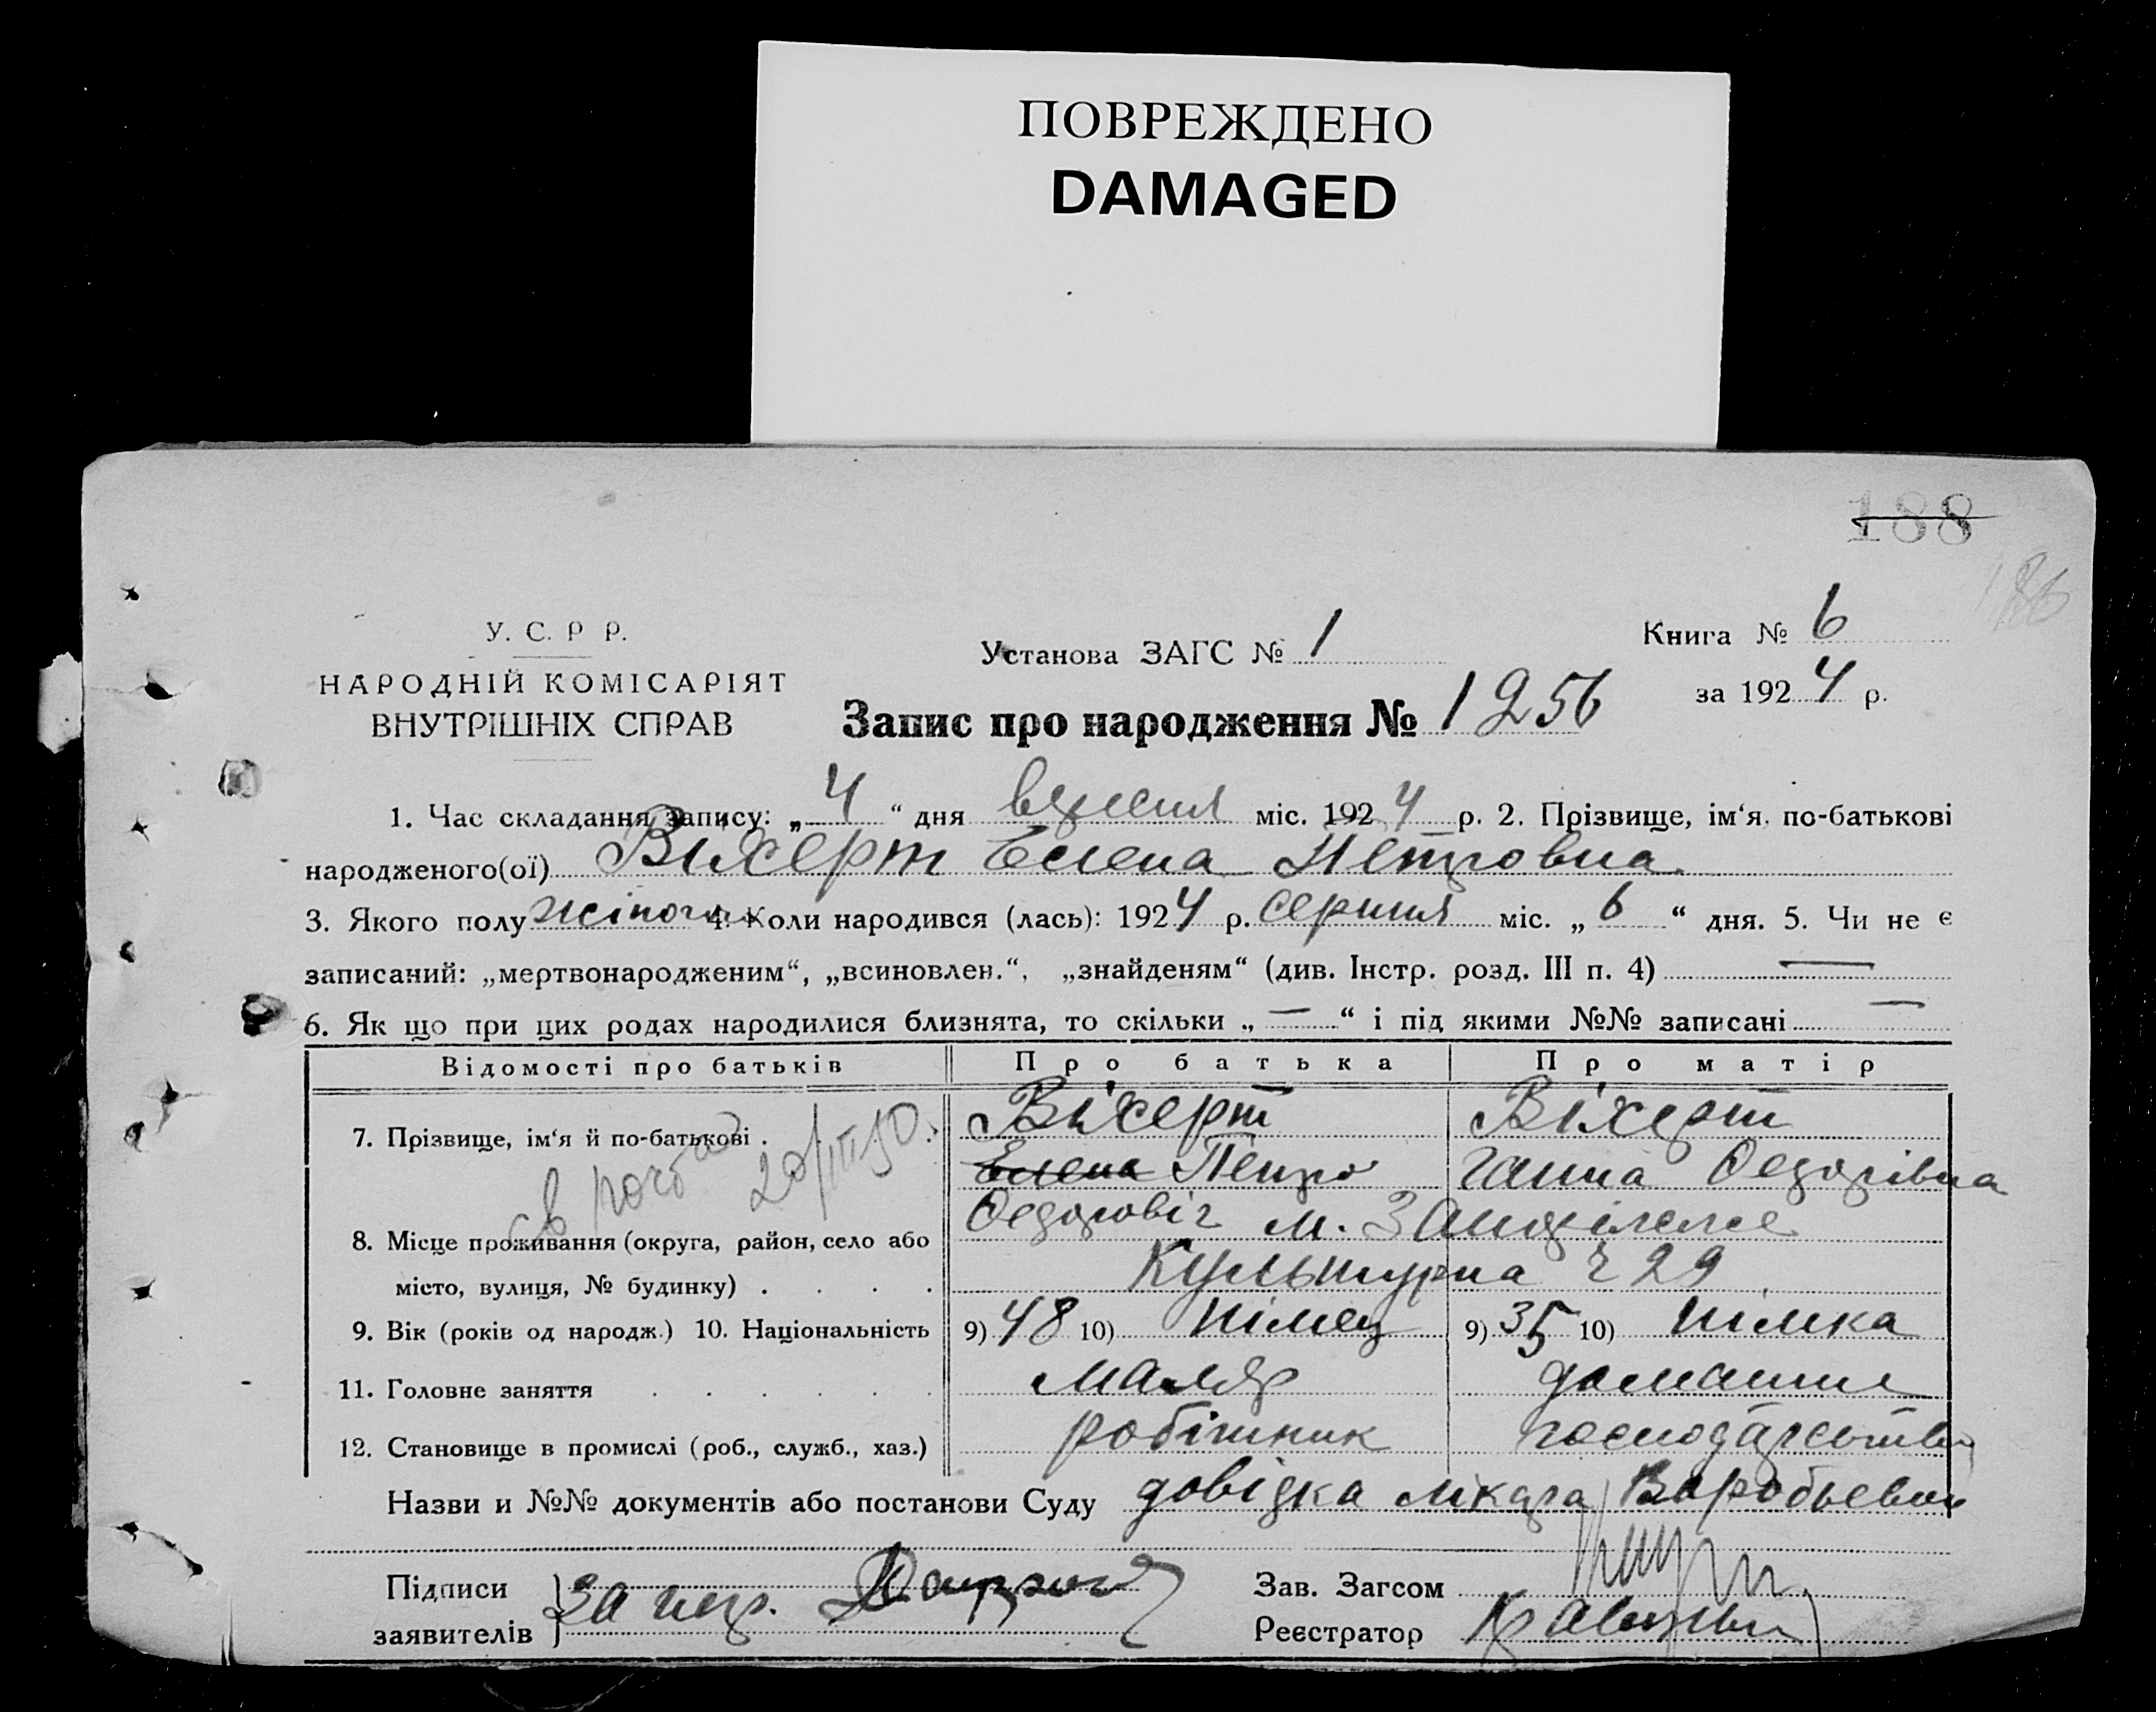 ПОВРЕЖДЕНО
DAMAGED
188
186
У. С. Р Р.
НАРОДНІЙ КОМІСАРІЯТ
ВНУТРІШНІХ СПРАВ
Установа ЗАГС № 1
Книга № 6
за 1924 р.
Запис про народження № 1256
1. Час складання запису: „4“ дня вересня міс. 1924 р. 2. Прізвище, ім‘я, по-батькові
народженого(ої) Віхерт Елена Петровна
3. Якого полу жіночого 4. Коли народився (лась): 1924 р. серпня міс. „6“ дня. 5. Чи не є
записаний: „мертвонародженим“, „всиновлен.“, „знайденям“ (див. Інстр. розд. III п. 4) —
6. Як що при цих родах народилися близнята, то скільки „—“ і під якими №№ записані —
Відомості про батьків Про батька Про матір
7. Прізвище, ім‘я й по-батькові . Віхерт Віхерт
Елена Петро Ганна Федорівна
св 20/III 50.
Федоровіч м. Запоріжже
8. Місце проживання (округа, район, село або
місто, вулиця, № будинку) . . . . Культурна ч 29
9. Вік (років од народж.) 10. Національність 9) 48 10) німец 9) 35 10) німка
11. Головне заняття . . . . . . маляр домашнє
12. Становище в промислі (роб., служб., хаз.) робітник господарство
Назви и №№ документів або постанови Суду довідка лікаря Воробьевой
Підписи
заявителів
За
Зав. Загсом
Реєстратор